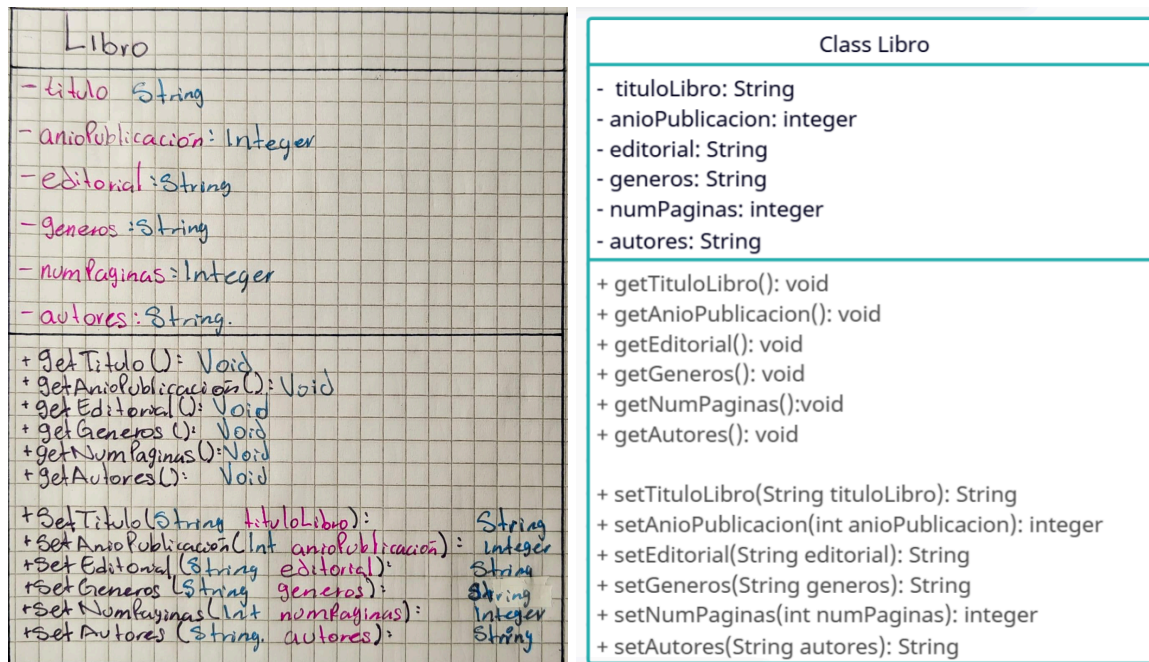 Libro
- titulo String
- anioPublicación: Integer
- editorial: String
- generos: String
- numPaginas: Integer
- autores: String.
+ getTitulo(): Void
+ getAnioPublicación(): Void
+ getEditorial(): Void
+ getGeneros(): Void
+ getNumPaginas(): Void
+ getAutores(): Void
+ SetTitulo(String tituloLibro): String
+ SetAnioPublicación(Int anioPublicación): Integer
+ SetEditorial(String editorial): String
+ Set Generos (String generos): String
+ Set NumPaginas(Int numPaginas): Integer
+ Set Autores (String. autores): String
Class Libro
- tituloLibro: String
- anioPublicacion: integer
- editorial: String
- generos: String
- numPaginas: integer
- autores: String
+ getTituloLibro(): void
+ getAnioPublicacion(): void
+ getEditorial(): void
+ getGeneros(): void
+ getNumPaginas():void
+ getAutores(): void
+ setTituloLibro(String tituloLibro): String
+ setAnioPublicacion(int anioPublicacion): integer
+ setEditorial(String editorial): String
+ setGeneros(String generos): String
+ setNumPaginas(int numPaginas): integer
+ setAutores(String autores): String